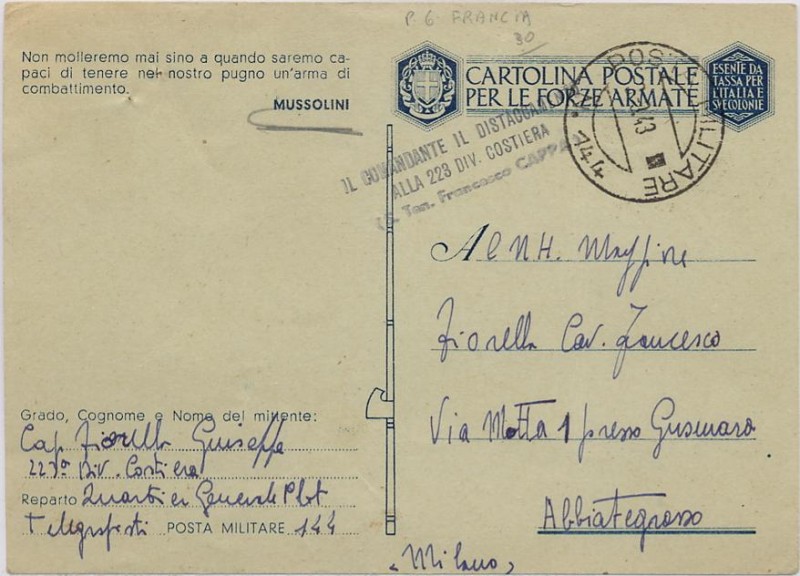 P. 6 FRANCIA
30
Non molleremo mai sino a quando saremo ca-
paci di tenere nel nostro pugno un'arma di
combattimento.
MUSSOLINI
CARTOLINA POSTALE
PER LE FORZE ARMATE
ESENTE DA
TASSA PER
L'ITALIA E
SUE COLONIE
POSTA MILITARE
43
144
IL COMANDANTE IL DISTACCAMENTO
ALLA 223 DIV. COSTIERA
(S. Ten. Francesco CAPPA
Al N.H. Maggiore
Fiorella Cav. Francesco
Via Motta 1 presso Gusmaro
Abbiategrasso
(Milano)
Grado, Cognome e Nome del mittente:
Cap. Fiorella Giuseppe
223a Div. Costiera
Reparto Quartier Generale Plot
Telegrafisti POSTA MILITARE 144